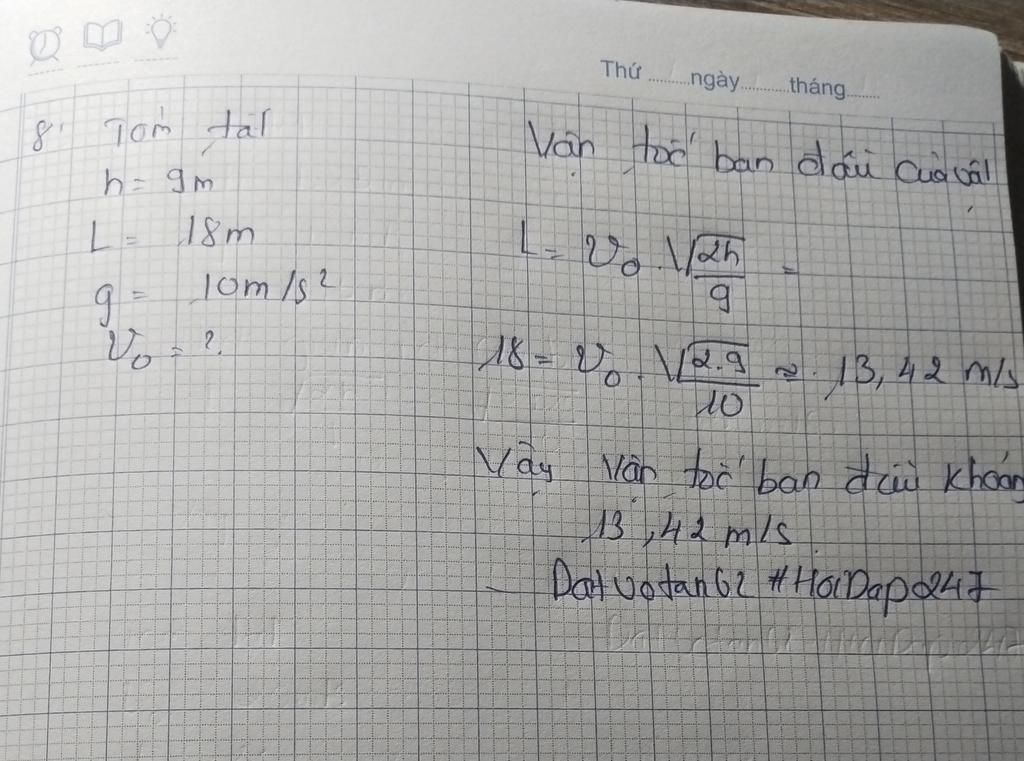 Thứ ........ngày..........tháng.......
8. Tóm tắt
h = 9m
L = 18m
g = 10m/s²
V₀ = ?
Vận tốc ban đầu của vật
L = V₀ . √2h/g =
18 = V₀ . √2.9/10 ≈ 13,42 m/s
Vậy vận tốc ban đầu khoảng
13,42 m/s
Datvotan62 #HoiDap247